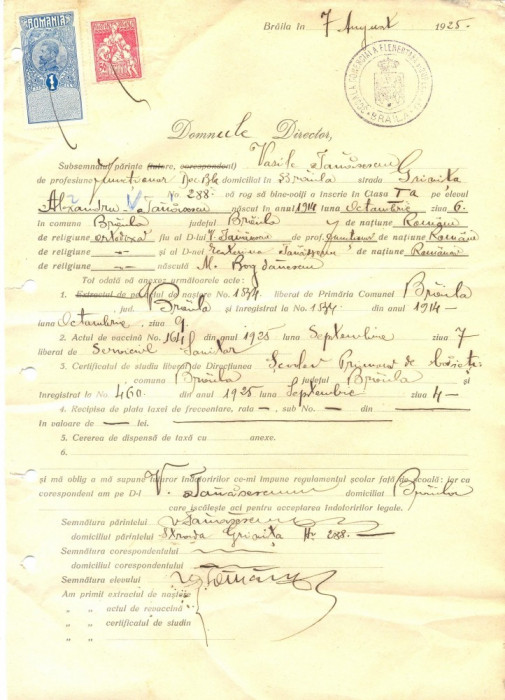 ROMANIA
1
Brăila în 7 August 1925.
ȘCOALA COMERCIALĂ ELEMENTARĂ
BRĂILA
Domnule Director,
Subsemnatul părinte (tutore, corespondent) Vasile Tănăsescu
de profesiune functionar domiciliat în Brăila strada Grivița
No 288 vă rog să bine-voiți a înscrie în Clasa I a pe elevul
Alexandru V Tănăsescu născut în anul 1914 luna Octombrie ziua 6.
în comuna Brăila județul Brăila de națiune Română
de religiune ortodoxă fiu al D-lui V Tănăsescu de prof. functionar de națiune Română
de religiune — și al D-nei Tănăsescu de națiune Română
de religiune — născută M.
Tot odată să anexez următoarele acte :
1. Extractul de pe actul de naștere No 1844 liberat de Primăria Comunei Brăila
, jud. Brăila și înregistrat la No 1844 din anul 1914
luna Octombrie, ziua 9.
2. Actul de vaccină No 1641 din anul 1925 luna Septembrie ziua 7
liberat de Serviciul Sanitar
3. Certificatul de studiu liberat de Direcțiunea Școalei Primare de băieți
, comuna Brăila județul Brăila și
înregistrat la No. 460 din anul 1925 luna Septembrie ziua 4 —
4. Recipisa de plata taxei de frecventare, rata — , sub No. — din —
în valoare de — lei.
5. Cererea de dispensă de taxă cu anexe.
6.
și mă oblig a mă supune tuturor îndatoririlor ce-mi impune regulamentul școlar față de școală; iar ca
corespondent am pe D-l V. Tănăsescu domiciliat Brăila
care iscălește aci pentru acceptarea îndatoririlor legale.
Semnătura părintelui V Tănăsescu
domiciliul părintelui Strada Grivița No 288 —
Semnătura corespondentului
domiciliul corespondentului
Semnătura elevului
Am primit extractul de naștere
„ „ actul de revaccină
„ „ certificatul de studiu